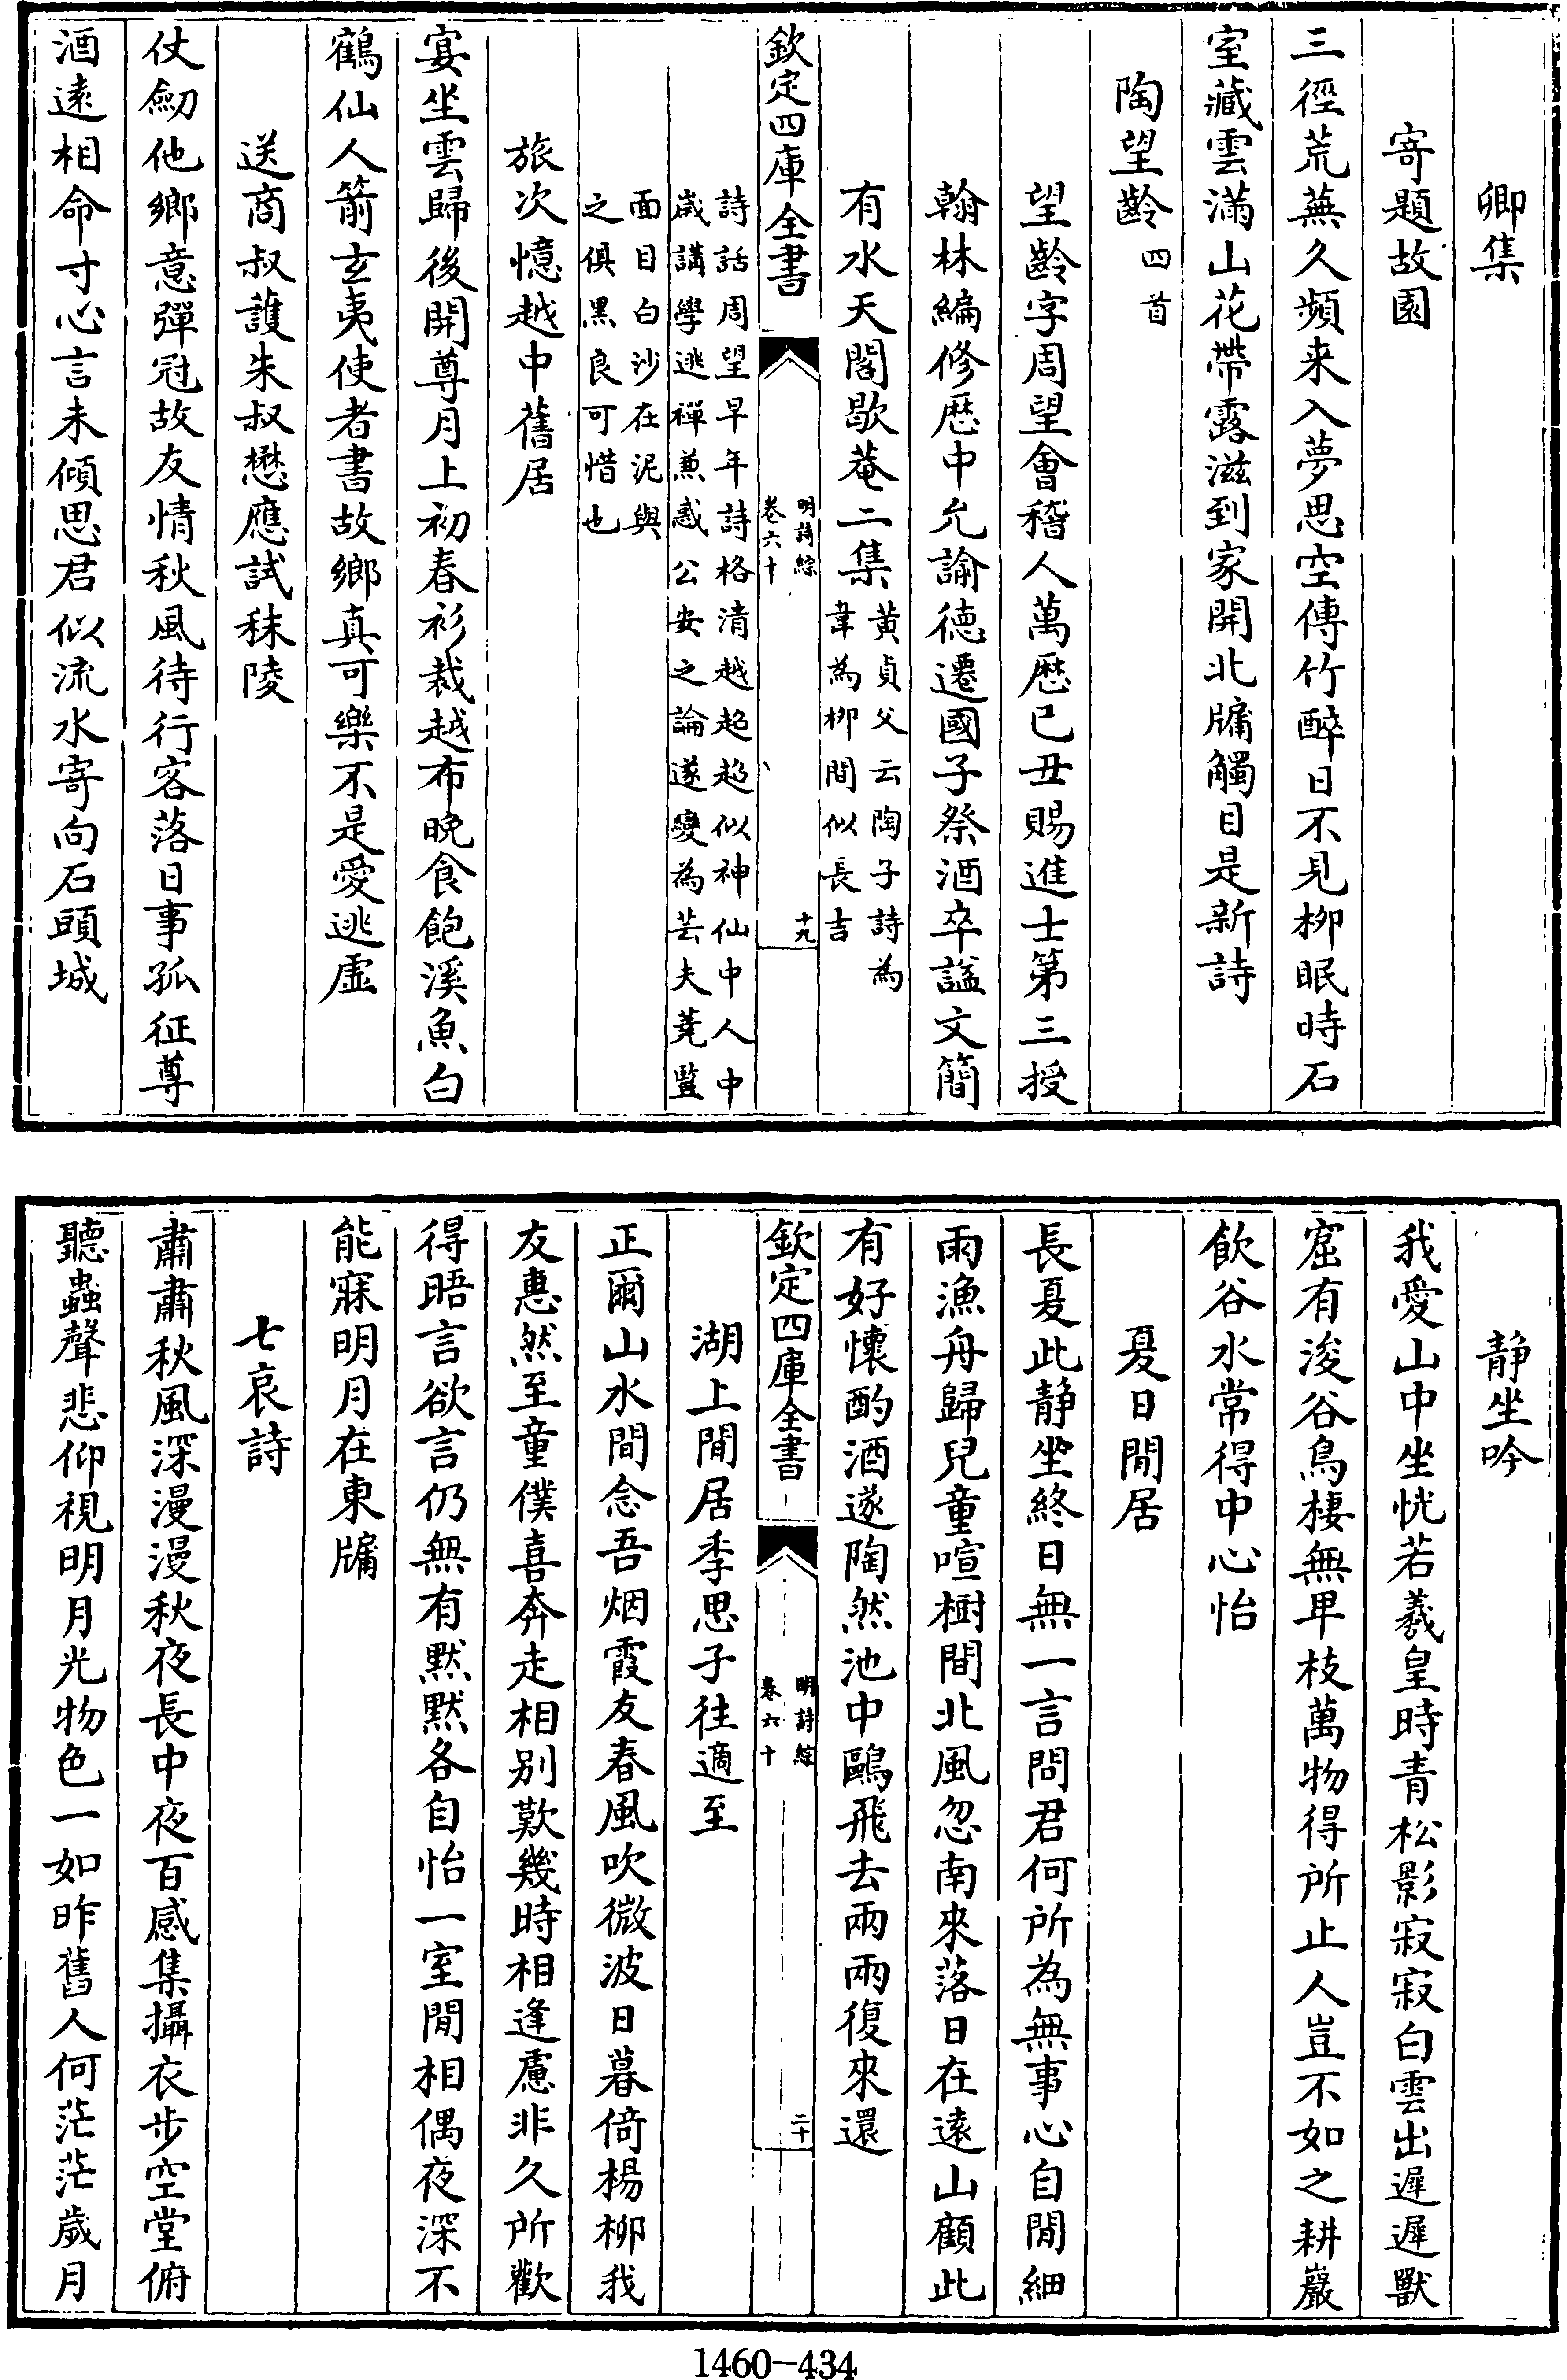 卿集
寄題故園
三徑荒蕪久頻来入夢思空傳竹醉日不見柳眠時石
室藏雲滿山花帶露滋到家開北牖觸目是新詩
陶望齡四首
望齡字周望會稽人萬歴己丑賜進士第三授
翰林編修歴中允諭徳遷國子祭酒卒諡文簡
有水天閣歇菴二集黄貞父云陶子詩為
韋為柳間似長吉
欽定四庫全書
明詩綜
卷六十
十九
詩話周望早年詩格清越超超似神仙中人中
歳講學逃禪兼惑公安之論遂變為芸夫蕘豎
面目白沙在泥與
之俱黑良可惜也
旅次憶越中舊居
宴坐雲歸後開尊月上初春衫裁越布晩食飽溪魚白
鶴仙人箭玄夷使者書故鄉真可樂不是愛逃虛
送商叔護朱叔懋應試秣陵
仗劒他鄉意彈冠故友情秋風待行客落日事孤征尊
酒遠相命寸心言未傾思君似流水寄向石頭城
靜坐吟
我愛山中坐恍若羲皇時青松影寂寂白雲出遲遲獸
窟有浚谷鳥棲無卑枝萬物得所止人豈不如之耕巖
飲谷水常得中心怡
夏日閒居
長夏此靜坐終日無一言問君何所為無事心自閒細
雨漁舟歸兒童喧樹間北風忽南來落日在遠山顧此
有好懷酌酒遂陶然池中鷗飛去兩兩復來還
欽定四庫全書
明詩綜
卷六十
二十
湖上閒居季思子往適至
正爾山水間念吾烟霞友春風吹微波日暮倚楊柳我
友惠然至童僕喜奔走相别歎幾時相逢慮非久所歡
得晤言欲言仍無有默默各自怡一室閒相偶夜深不
能寐明月在東牖
七哀詩
肅肅秋風深漫漫秋夜長中夜百感集攝衣步空堂俯
聽蟲聲悲仰視明月光物色一如昨舊人何茫茫歲月
1460-434